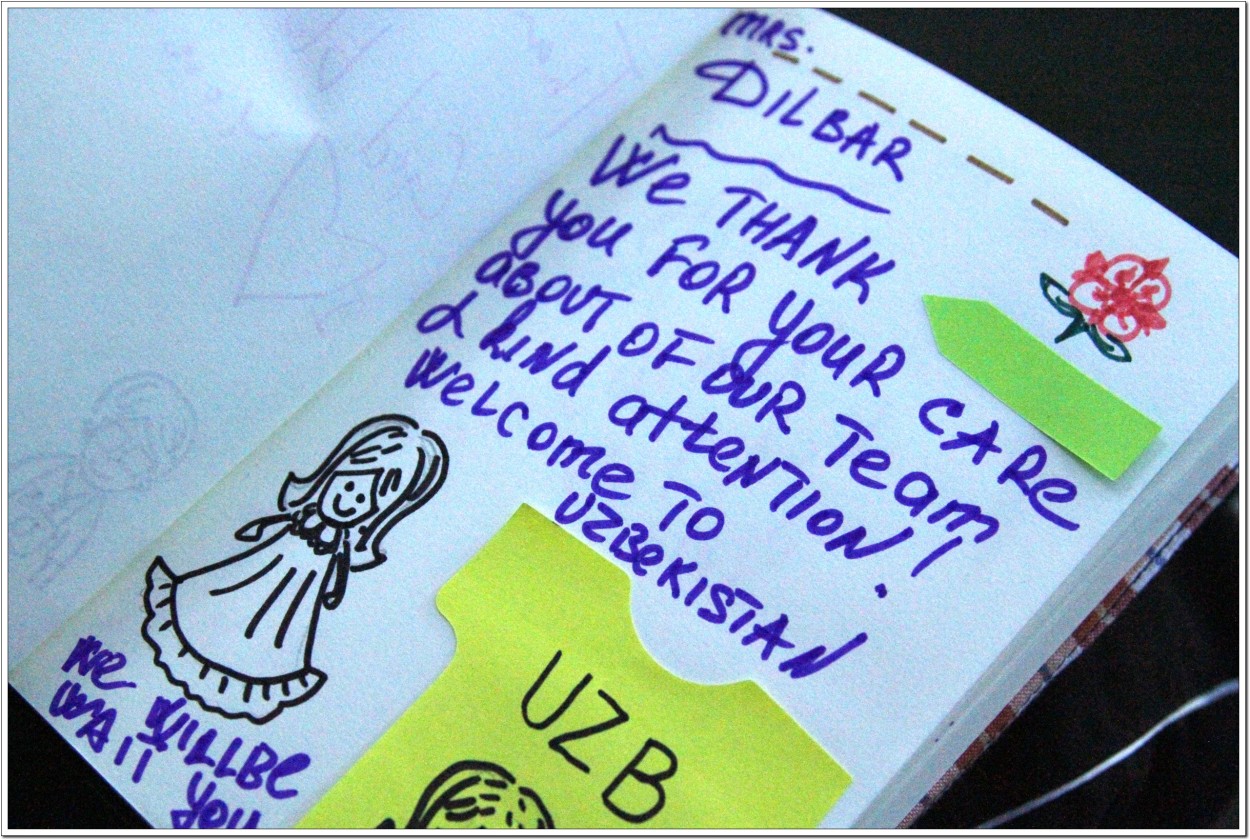 MRS.
DILBAR
We THANK
you FOR YOUR CARE
ABOUT OF OUR Team
& KIND attention!
Welcome TO
UZBEKISTAN!
UZB
We WILLBE
WAIT you